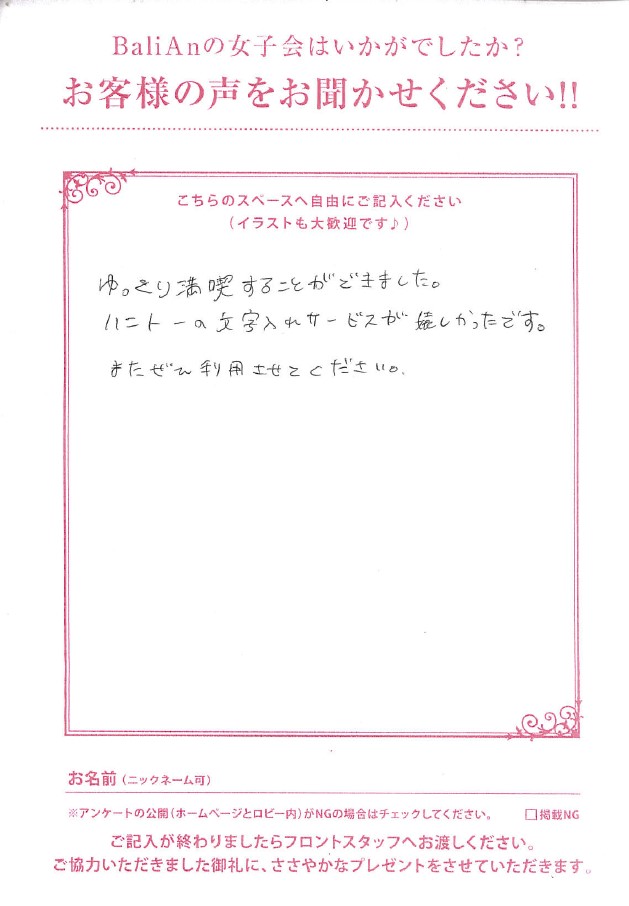 BaliAnの女子会はいかがでしたか?
お客様の声をお聞かせください!!
こちらのスペースへ自由にご記入ください
(イラストも大歓迎です♪)
ゆっくり満喫することができました。
ハニトーの文字入れサービスが嬉しかったです。
またぜひ利用させてください。
お名前(ニックネーム可)
※アンケートの公開(ホームページとロビー内)がNGの場合はチェックしてください。 □掲載NG
ご記入が終わりましたらフロントスタッフへお渡しください。
ご協力いただきました御礼に、ささやかなプレゼントをさせていただきます。